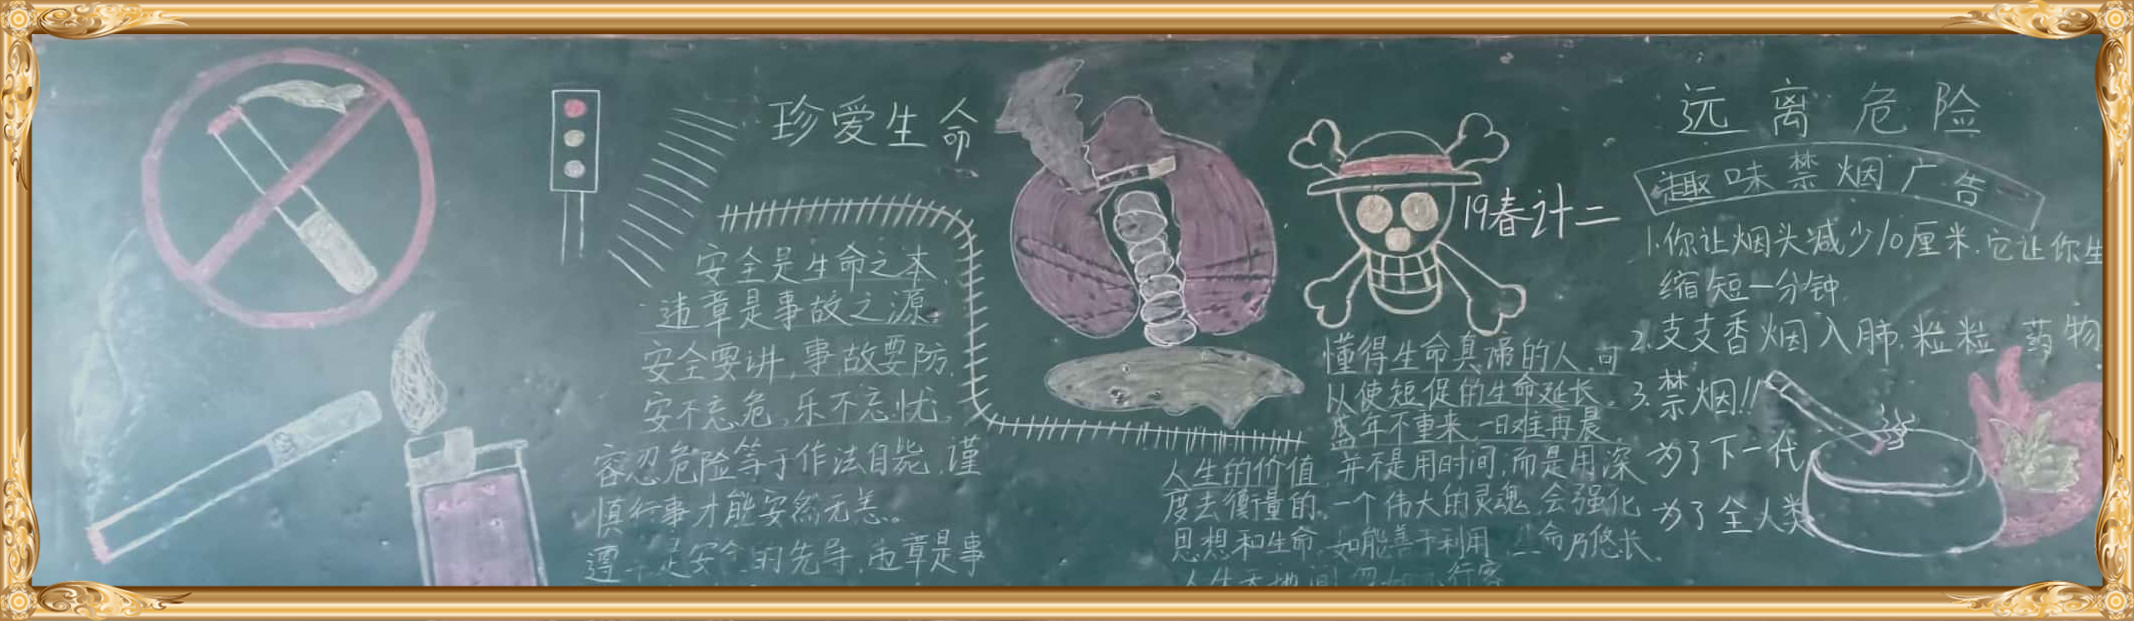 珍爱生命
安全是生命之本，
违章是事故之源。
安全要讲，事故要防，
安不忘危，乐不忘忧，
容忍危险等于作法自毙，谨
慎行事才能安然无恙。
遵 是安全的先导，违章是事
19春计二
懂得生命真谛的人，可
以使短促的生命延长。
盛年不重来，一日难再晨。
人生的价值，并不是用时间，而是用深
度去衡量的。一个伟大的灵魂，会强化
思想和生命。如能善于利用，生命乃悠长。
人生天地间，忽如 行客
远离危险
趣味禁烟广告
1.你让烟头减少10厘米.它让你生
缩短一分钟.
2.支支香烟入肺.粒粒 药物
3.禁烟!!
为了下一代
为了全人类